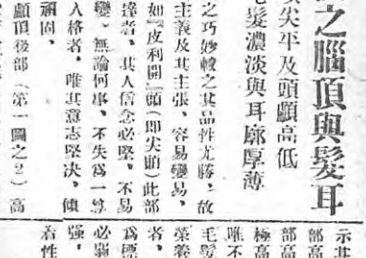 之腦頂與髮耳
頂尖平及頭顱高低
毛髮濃淡與耳廓厚薄
之巧妙較之其品性尤勝、故
主義及其主張、容易變易、
如『皮利開』頭(即尖頭)此部
達者、其人信念必堅、不易
變、無論何事、不失爲一尊
人格者、唯其意志堅決、傾
頑固、
顱頂後部(第一圖之2)高
示其
部高
部高
極高
唯不
毛髮
榮養
者、
爲標
必羸
强、
着性